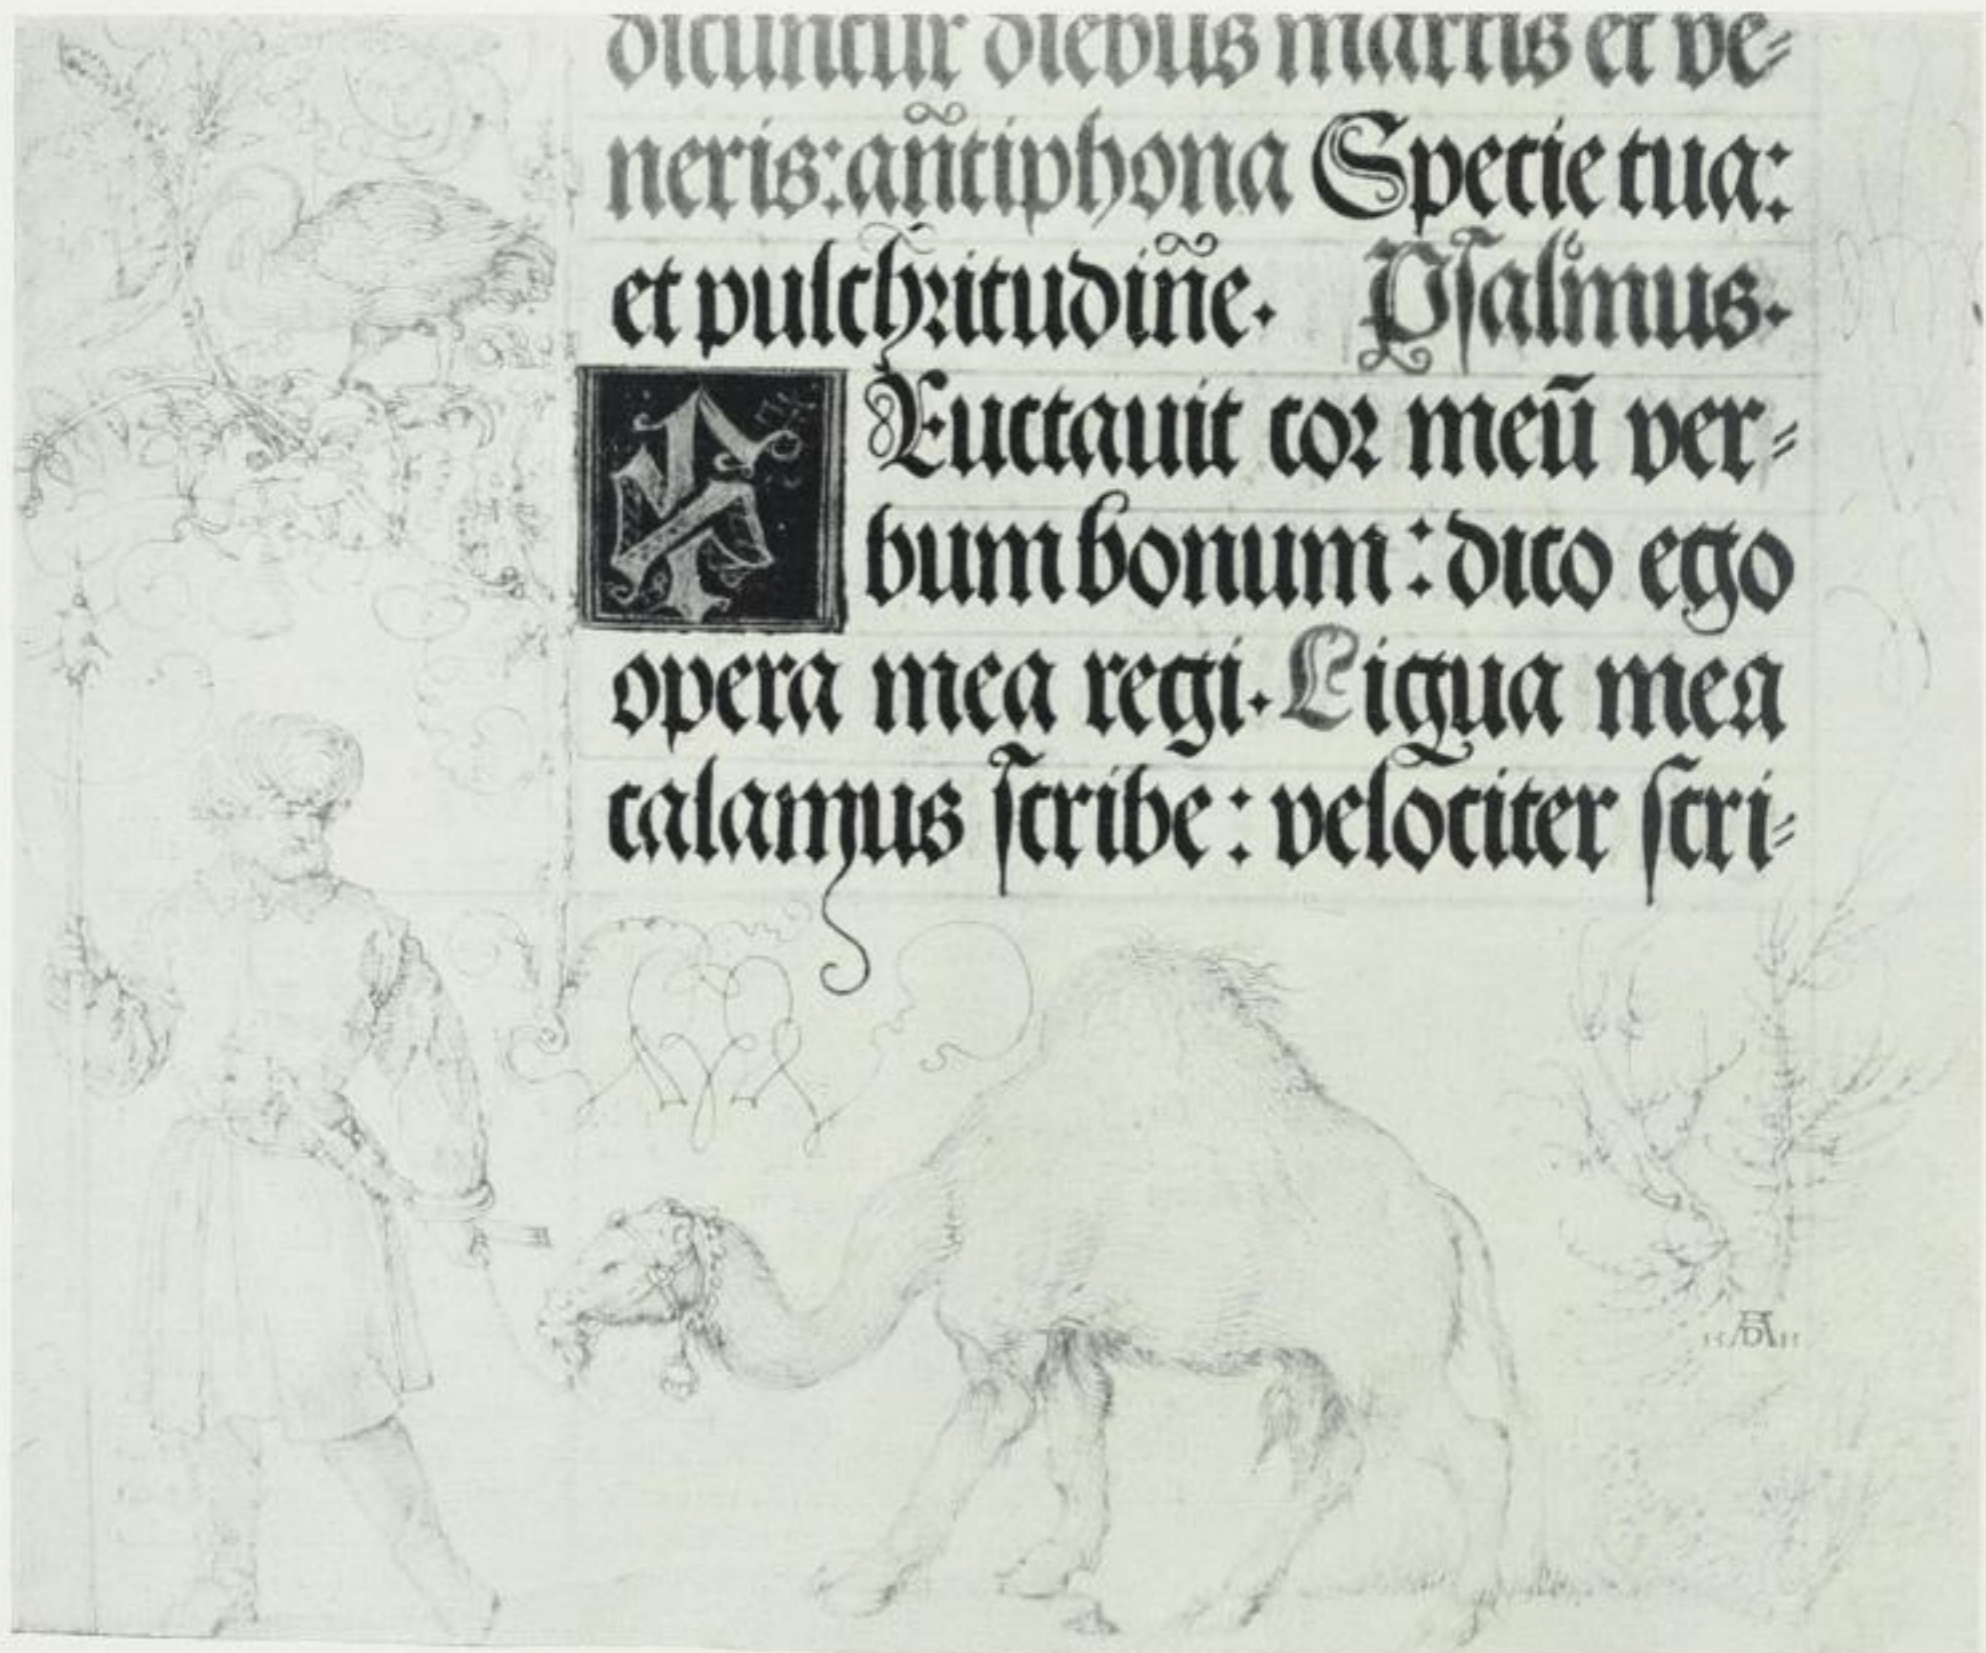 dicuntur diebus martis et ve=
neris: añtiphona Specie tua:
et pulchritudiñe. Psalmus.
Eructauit cor meū ver=
bum bonum: dico ego
opera mea regi. Ligua mea
calamus scribe: velociter scri=